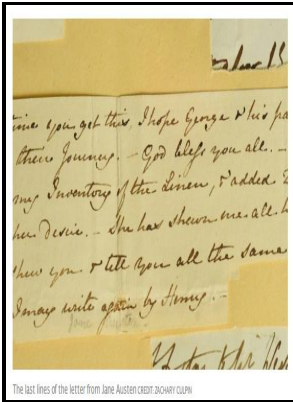 time you get this, I hope George & his pa
their Journey. — God bless you all. —
my Inventory of the Linen, & added
her Desire. — She has shewn me all h
shew you & tell you all the same
I may write again by Henry. —
The last lines of the letter from Jane Austen CREDIT: ZACHARY CULPIN